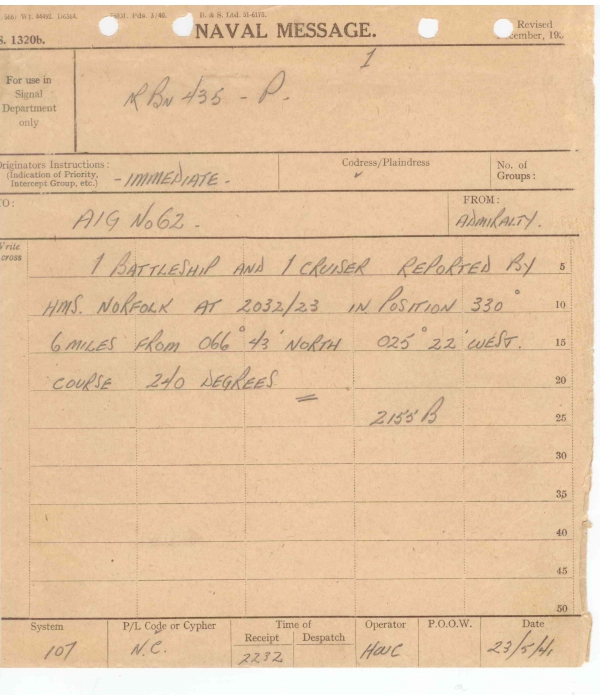 NAVAL MESSAGE.
Revised
S. 1320b.
1
For use in
Signal
Department
only
RBN 435 - P.
Originators Instructions:
(Indication of Priority,
Intercept Group, etc.)
- IMMEDIATE -
Codress/Plaindress
No. of
Groups:
TO:
AIG No 62 -
FROM:
ADMIRALTY.
Write
cross
1 BATTLESHIP AND 1 CRUISER REPORTED BY 5
HMS. NORFOLK AT 2032/23 IN POSITION 330° 10
6 MILES FROM 066° 43' NORTH 025° 22' WEST. 15
COURSE 240 DEGREES 20
2155 B 25
30
35
40
45
50
System P/L Code or Cypher Time of Operator P.O.O.W. Date
Receipt Despatch
107 N.C. 2232 23/5/41